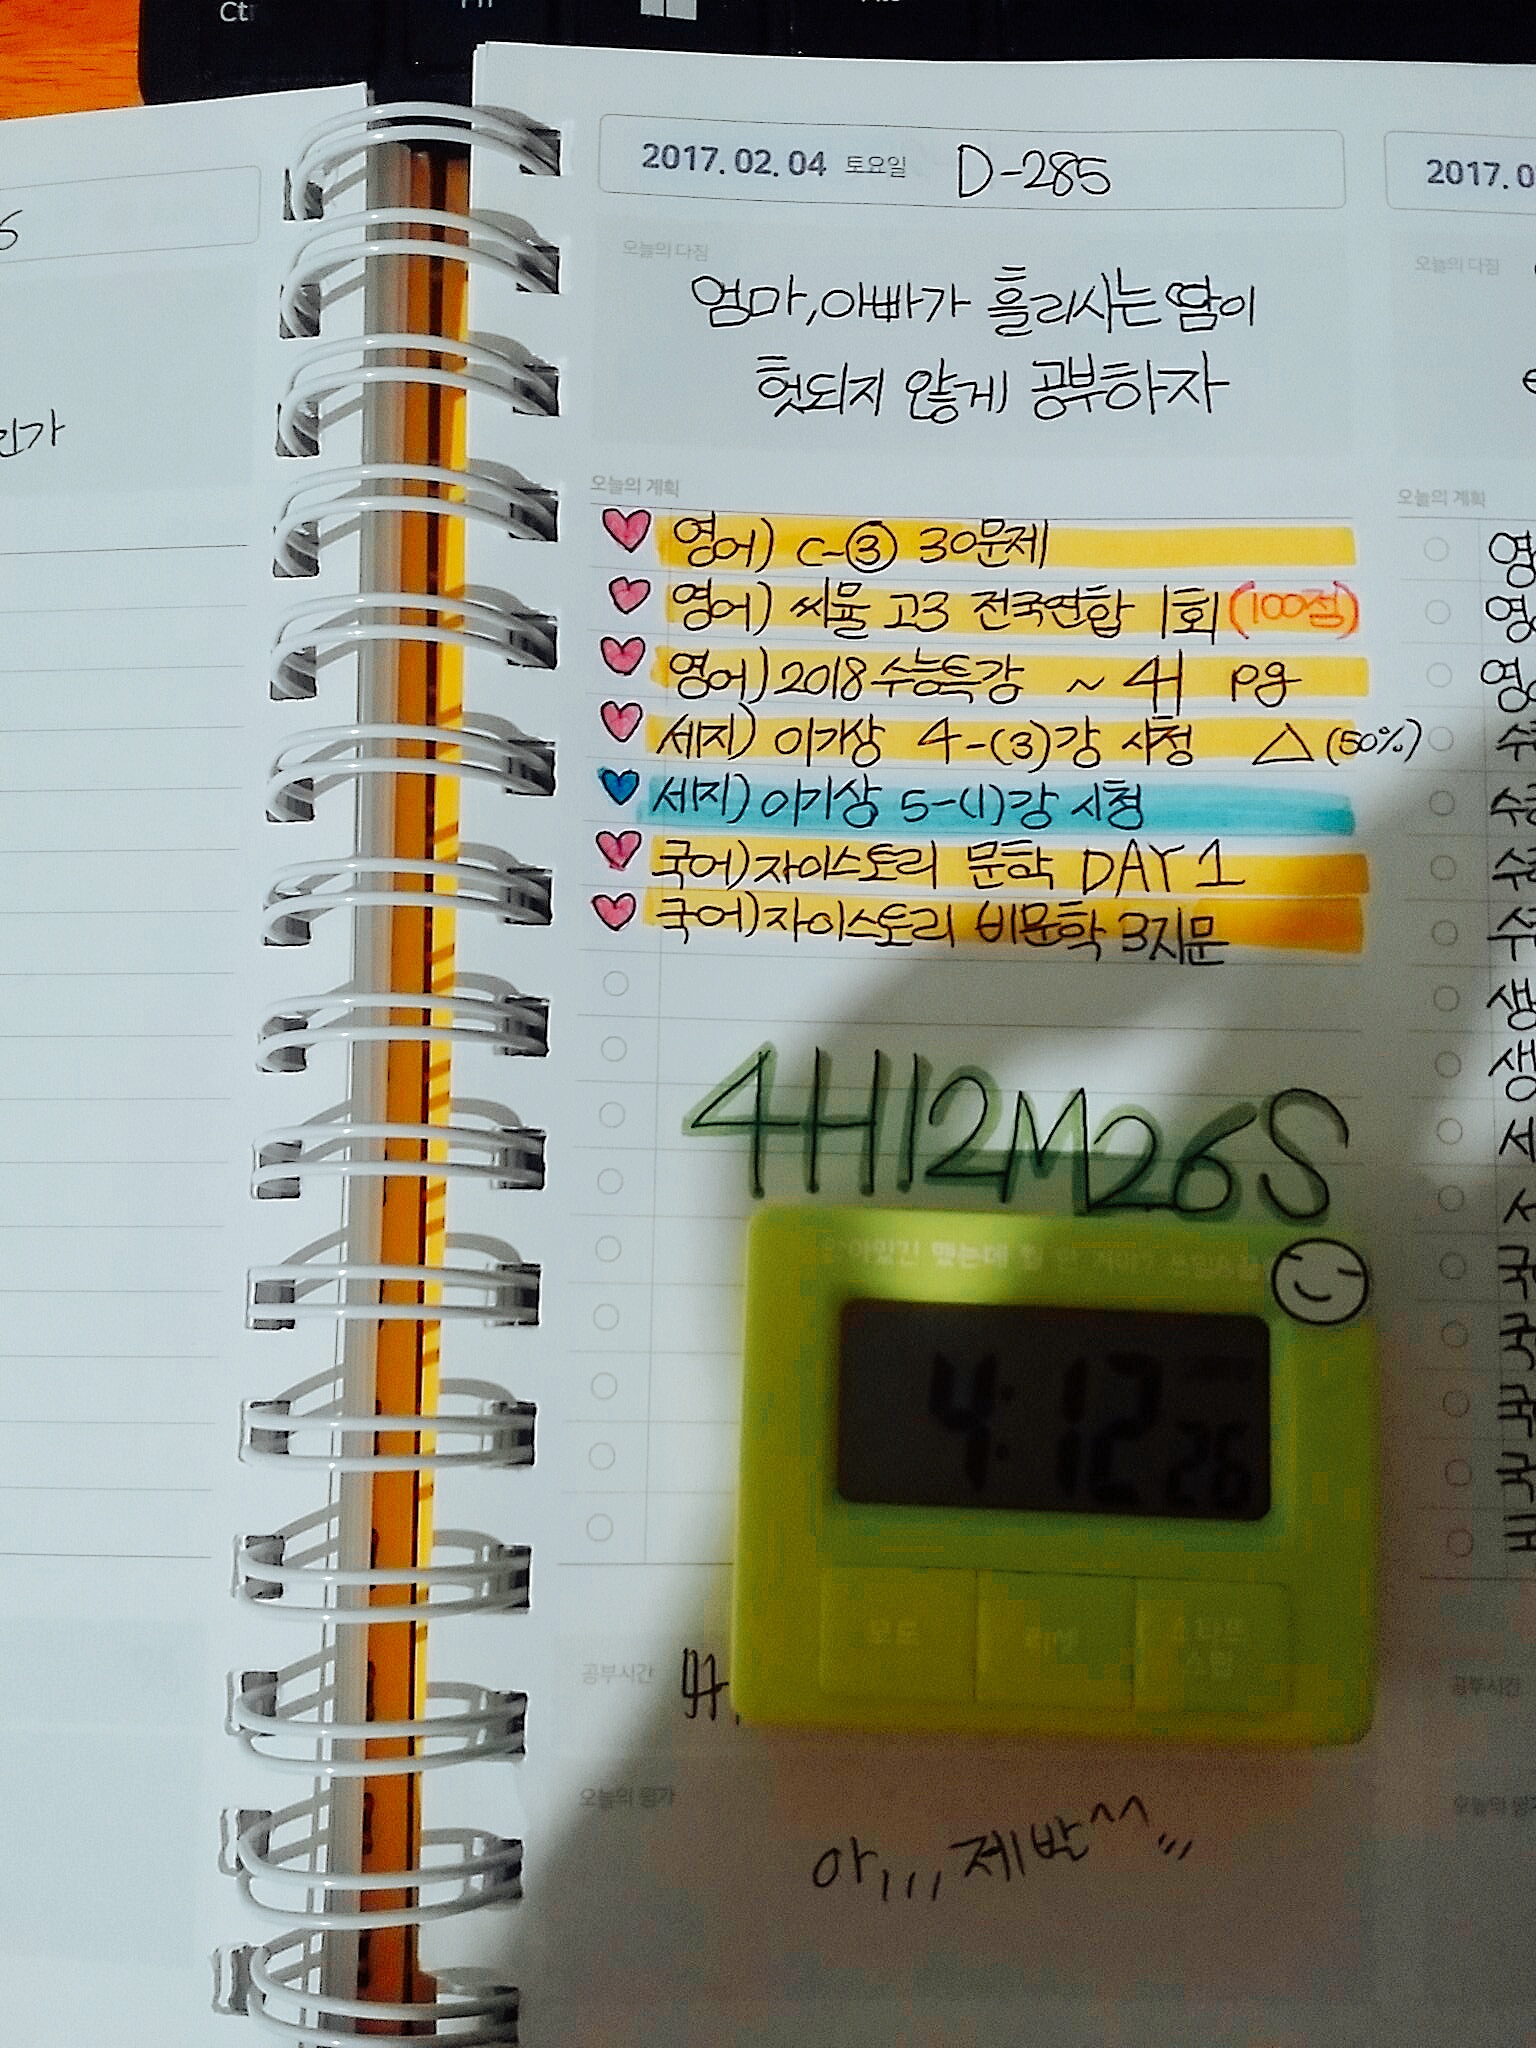 Ctrl
2017.02.04 토요일 D-285
2017.0
오늘의 다짐
오늘의 다짐
엄마,아빠가 흘리시는 땀이
헛되지 않게 공부하자
인가
오늘의 계획
오늘의 계획
영어) C-③ 30문제
영어) 씨뮬 고3 전국연합 1회 (100점)
영어) 2018 수능특강 ~ 41 pg
세지) 이기상 4-(3)강 시청 △ (50%)
세지) 이기상 5-(1)강 시청
국어) 자이스토리 문학 DAY 1
국어) 자이스토리 비문학 3지문
4H12M26S
4:12 26
모드
리셋
스타트
스톱
공부시간
공부시간
오늘의 평가
오늘의 평가
아,,, 제발^^;;;